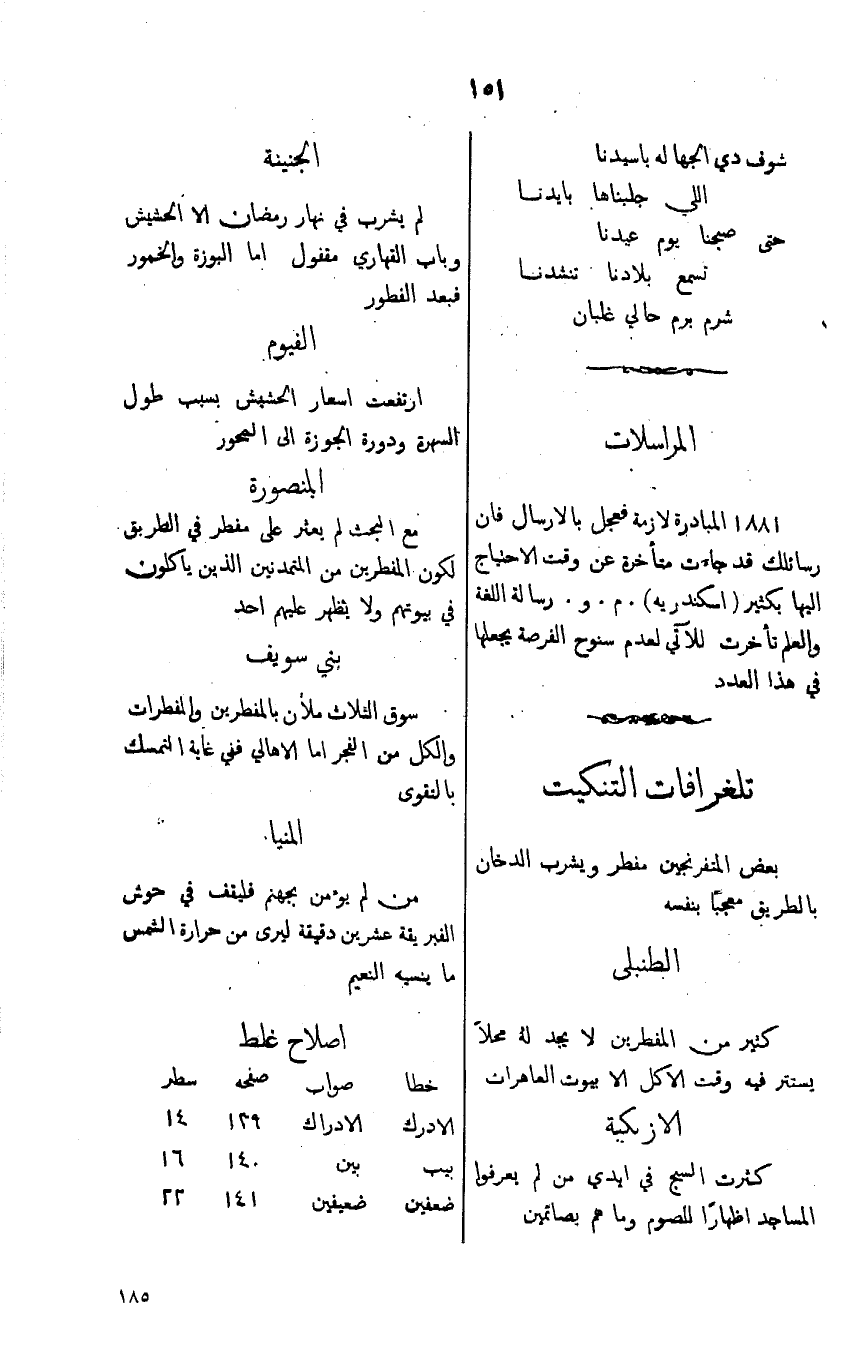 ١٥١
شوف دي الجهاله ياسيدنا
اللي جلبناها بايدنـا
حتى صبحنا يوم عيدنا
تسمع بلادنا تنشدنـا
شرم برم حالي غلبان
المراسلات
١٨٨١ المبادرة لازمة فعجل بالارسال فان
رسائلك قد جاءت متأخرة عن وقت الاحتياج
اليها بكثير (اسكندريه) ٠ م ٠ و ٠ رسالة اللغة
والعلم تأخرت للآتي لعدم سنوح الفرصة يجعلها
في هذا العدد
تلغرافات التنكيت
بعض المتفرنجين مفطر ويشرب الدخان
بالطريق معجبًا بنفسه
الطنبلى
كثير من المفطرين لا يجد لهُ محلاً
يستتر فيه وقت الاكل الا بيوت العاهرات
الازبكية
كثرت السبح في ايدي من لم يعرفوا
المساجد اظهارًا للصوم وما هم بصائمين
الجنينة
لم يشرب في نهار رمضان الا الحشيش
وباب القهاري مقفول اما البوزة والخمور
فبعد الفطور
الفيوم
ارتفعت اسعار الحشيش بسبب طول
السهرة ودورة الجوزة الى السحور
المنصورة
مع البحث لم يعثر على مفطر في الطريق
لكون المفطرين من المتمدنين الذين ياكلون
في بيوتهم ولا يظهر عليهم احد
بني سويف
سوق الثلاث ملأن بالمفطرين والمفطرات
والكل من الفجر اما الاهالي ففي غاية التمسك
بالتقوى
المنيا
من لم يوءمن بجهنم فليقف في حوش
الفبريقة عشرين دقيقة ليرى من حرارة الشمس
ما ينسيه النعيم
اصلاح غلط
خطا صواب صفحه سطر
الادرك الادراك ١٣٩ ١٤
بيب بين ١٤٠ ١٦
ضعفين ضعيفين ١٤١ ٢٢
١٨٥